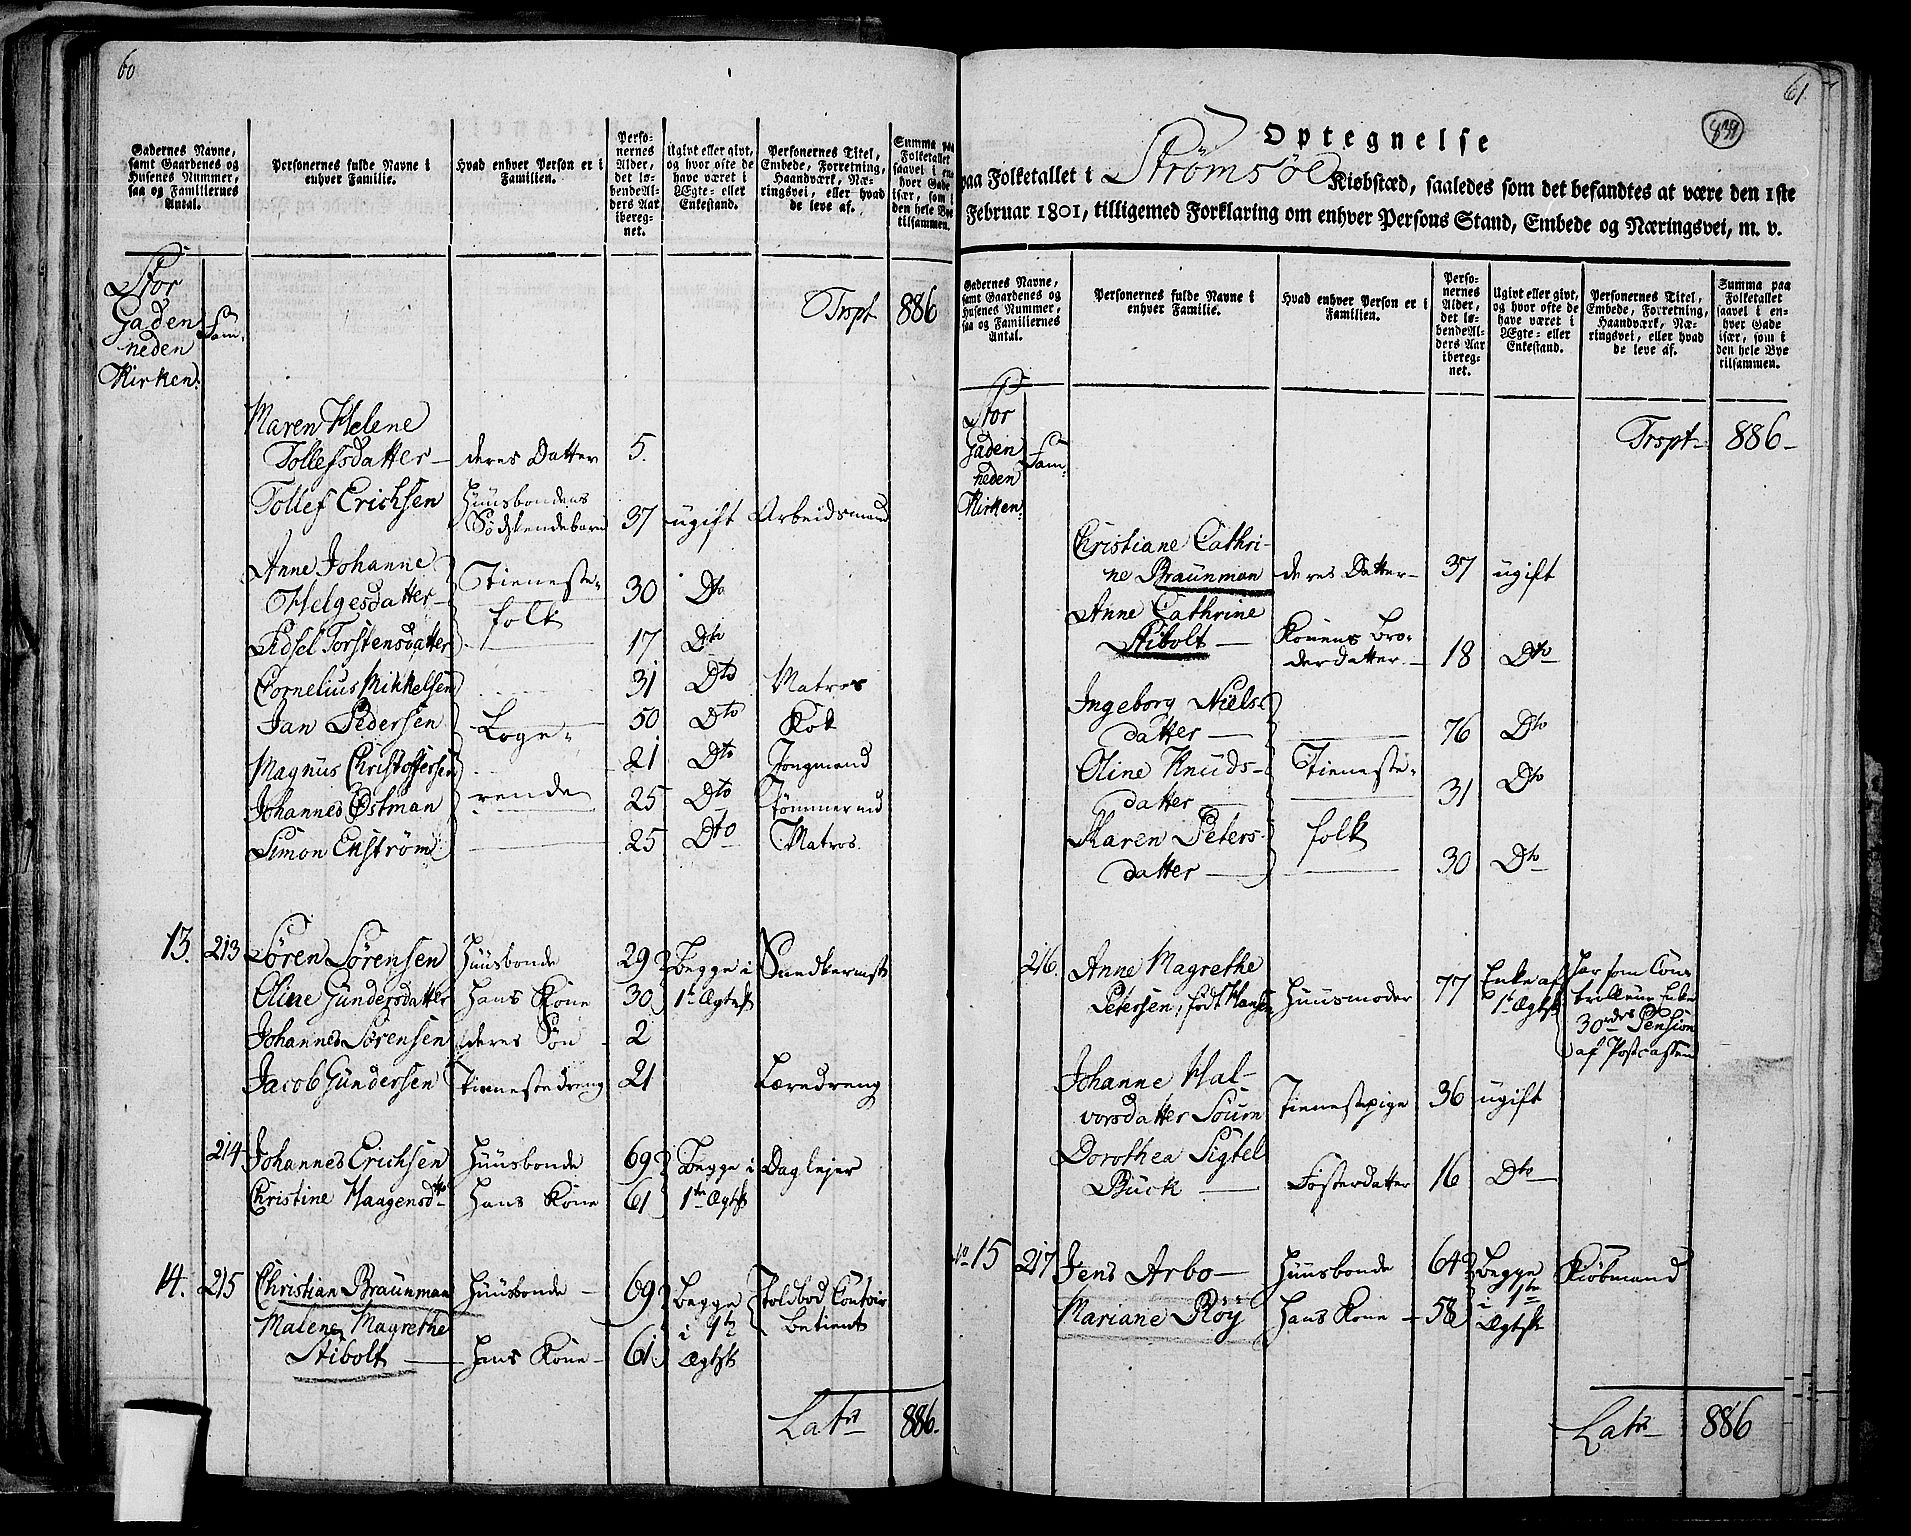 60
Gadernes Navne,
samt Gaardenes og
Husenes Nummer,
saa og Familiernes
Antal.
Personernes fulde Navne i
enhver Familie.
Hvad enhver Person er i
Familien.
Perso-
nernes
Alder,
det lø-
bende Al-
ders Aar
ibereg-
net.
Ugivt eller givt,
og hvor ofte de
have været i
Ægte- eller
Enkestand.
Personernes Titel,
Embede, Forretning,
Haandværk, Næ-
ringsvei, eller hvad
de leve af.
Summa paa
Folketallet
saavel i en-
hver Gade
især, som i
den hele Bye
tilsammen.
Stor
Gaden
neden
Kirken.
Fam.
Trspt 886
Maren Helene
Tollefsdatter – deres Datter 5.
Tollef Erichsen Huusbondens
Sødskendebarn 37 ugift Arbeidsmand
Anne Johanne
Helgesdatter – Tieneste- 30 Dto
folk
Sidsel Torstensdatter 17 Dto
Cornelius Mikkelsen 31 Dto Matros
Jan Pedersen Loge- 50 Dto Kok
Magnus Christoffersen 21 Dto Jongmand
Johannes Østman rende 25 Dto Tømmermd
Simon Enström 25 Dto Matros.
13. 213 Sören Sörensen Huusbonde 29 Begge i Snedkermstr
Oline Gundersdatter hans Kone 30 1te Ægtsk
Johannes Sörensen deres Søn 2
Jacob Gundersen Tienestedreng 21 Læredreng
214 Johannes Erichsen Huusbonde 69 Begge i Daglejer
Christine Haagensdtr hans Kone 61 1te Ægtsk
14. 215 Christian Braunman Huusbonde – 69 Begge Toldbod Contoir
Malene Magrethe i 1te Betient
Stibolt – hans Kone – 61. Ægtsk
Latr 886.
61
839
Optegnelse
paa Folketallet i Strømsøe Kiøbstæd, saaledes som det befandtes at være den 1ste
Februar 1801, tilligemed Forklaring om enhver Persons Stand, Embede og Næringsvei, m. v.
Gadernes Navne,
samt Gaardenes og
Husenes Nummer,
saa og Familiernes
Antal.
Personernes fulde Navne i
enhver Familie.
Hvad enhver Person er i
Familien.
Perso-
nernes
Alder,
det lø-
bende Al-
ders Aar
ibereg-
net.
Ugivt eller givt,
og hvor ofte de
have været i
Ægte- eller
Enkestand.
Personernes Titel,
Embede, Forretning,
Haandværk, Næ-
ringsvei, eller hvad
de leve af.
Summa paa
Folketallet
saavel i en-
hver Gade
især, som i
den hele Bye
tilsammen.
Stor
Gaden
neden
Kirken.
Fam.
Trspt – 886 –
Christiane Cathri-
ne Braunman deres Datter – 37 ugift
Anne Cathrine
Stibolt – Konens Bro-
derdatter – 18 Dto
Ingeborg Niels-
datter – 76 Dto
Oline Knuds- Tieneste-
datter – 31 Dto
Karen Peters- folk
datter – 30 Dto
216. Anne Magrethe
Petersen, født Hansen Huusmoder 77 Enke af
1te Ægtsk
har som Con-
trolleur Enke
30 rdr Pension
af Postcassen
Johanne Hal-
vorsdatter Tienestepige 36 ugift
Dorothea Sigtel
Buck – Fosterdatter 16 Dto
No 15 217 Jens Arbo – Huusbonde 64 Begge Kiøbmand
Mariane Röy hans Kone – 58 i 1te
Ægtsk
Latr 886